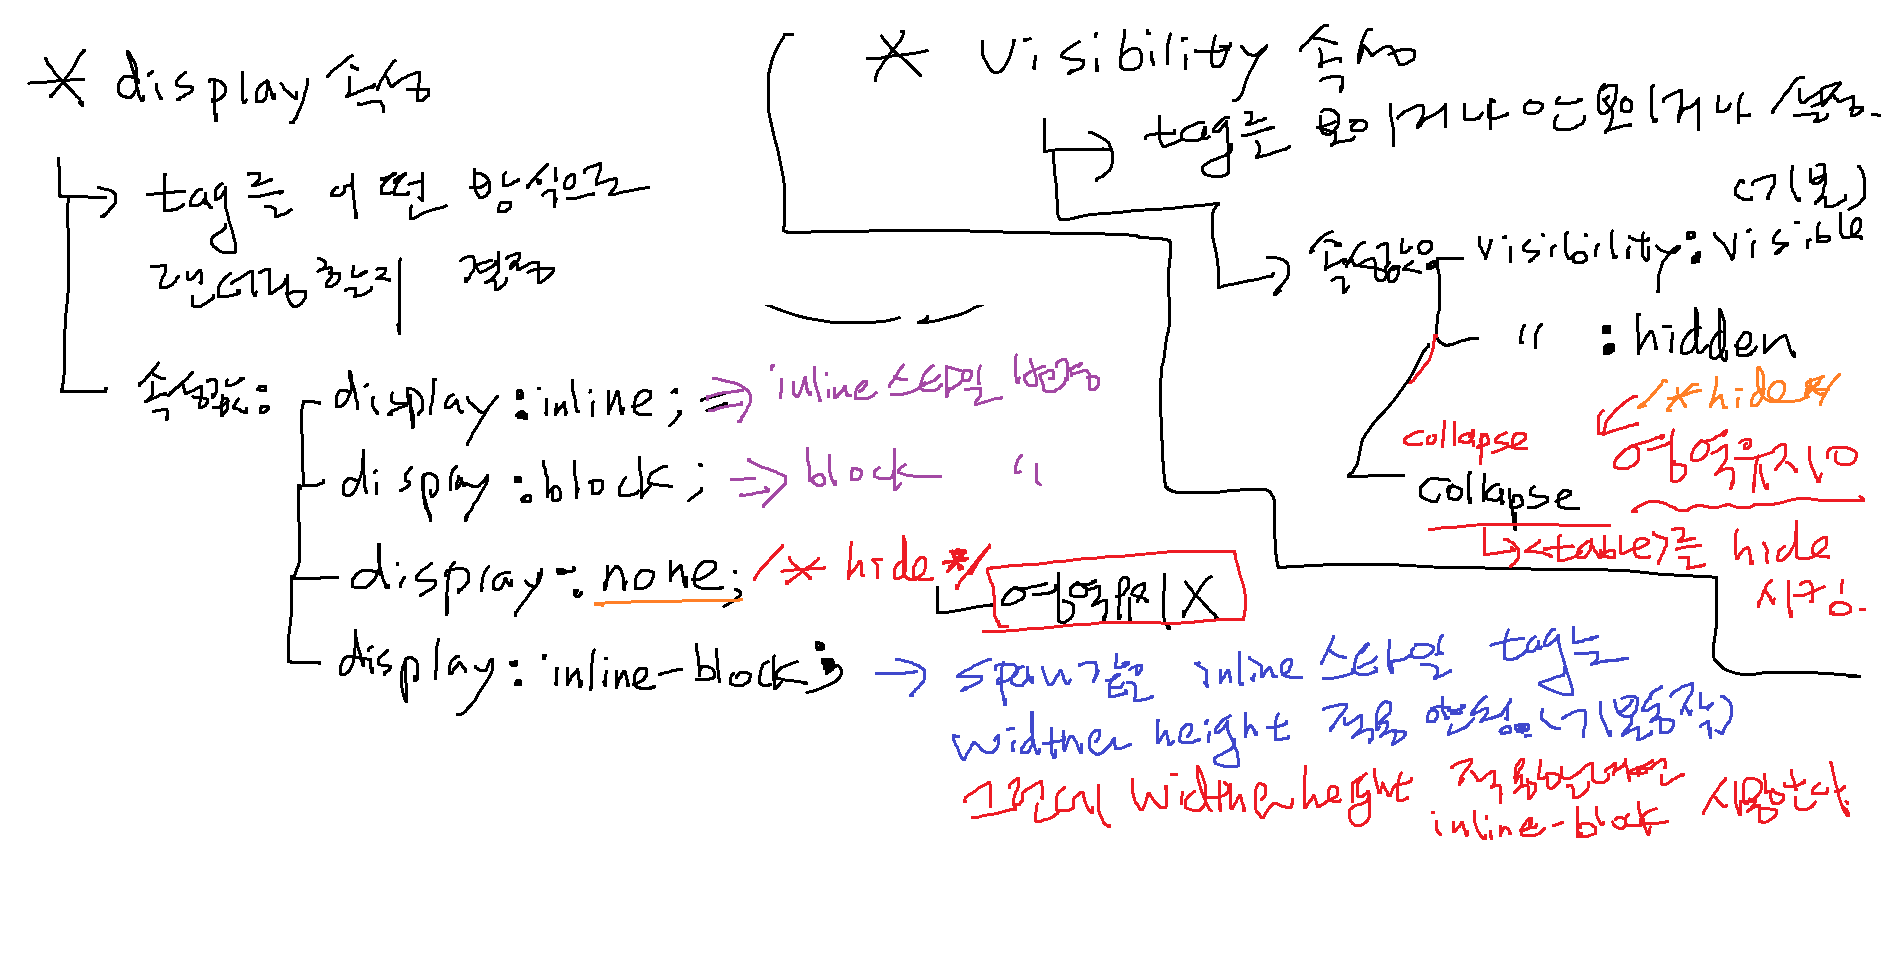 * display 속성
tag를 어떤 방식으로
랜더링할지 결정
속성값:
display:inline; => inline 스타일 변경
display:block; => block "
display: none; /* hide */
영역유지X
display: inline-block; → span같은 inline 스타일 tag는
width나 height 적용 안됨.(기본동작)
그런데 width나 height 적용하려면
inline-block 사용한다.
* visibility 속성
tag를 보이거나 안보이거나 설정.
(기본)
속성값은: visibility:visible
" :hidden
/*hide*/
collapse
영역유지O
collapse
<table>를 hide
시킴.